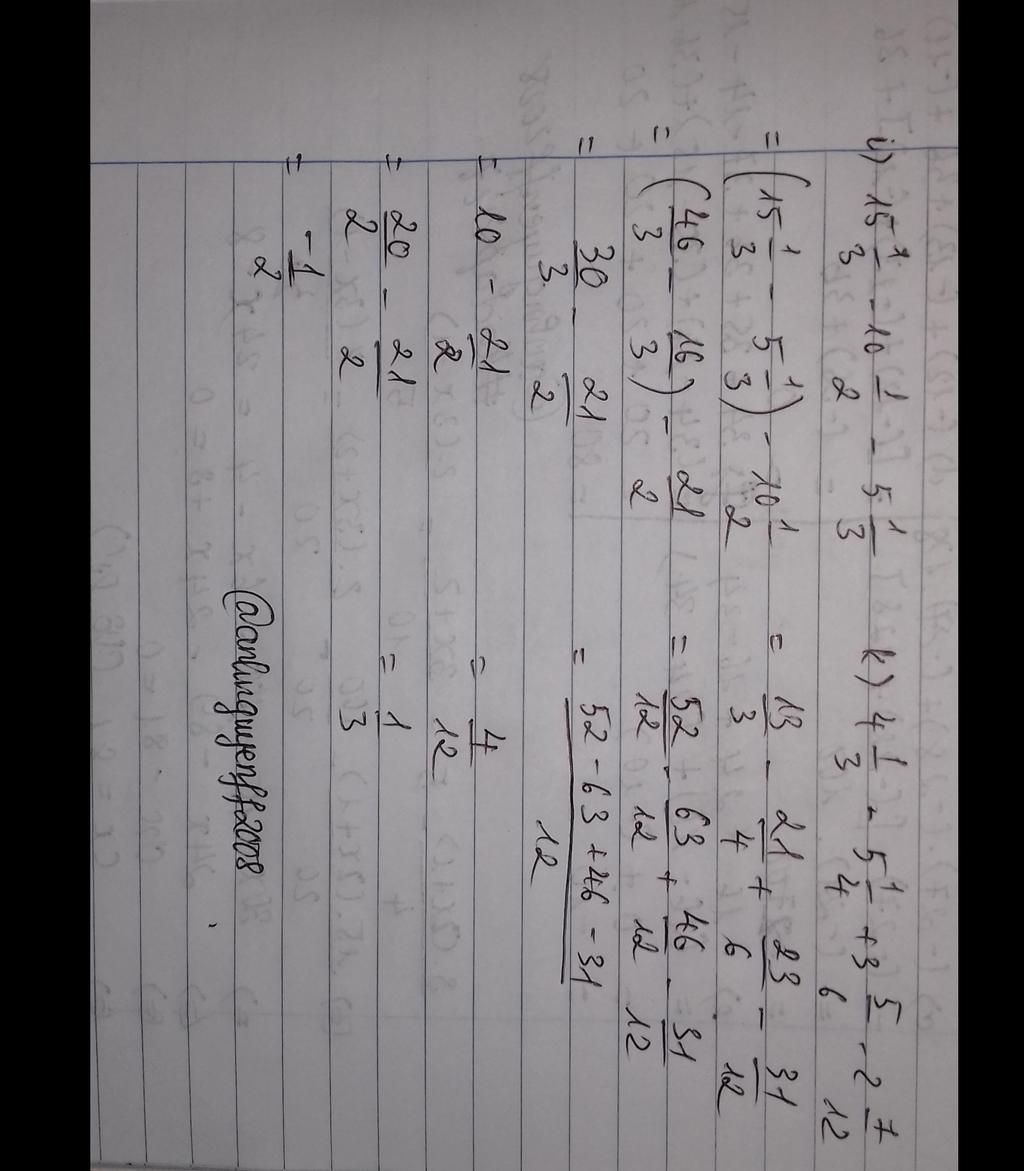 i) 15 1/3 - 10 1/2 - 5 1/3
= (15 1/3 - 5 1/3) - 10 1/2
= (46/3 - 16/3) - 21/2
= 30/3 - 21/2
= 10 - 21/2
= 20/2 - 21/2
= -1/2
k) 4 1/3 - 5 1/4 + 3 5/6 - 2 7/12
= 13/3 - 21/4 + 23/6 - 31/12
= 52/12 - 63/12 + 46/12 - 31/12
= (52 - 63 + 46 - 31)/12
= 4/12
= 1/3